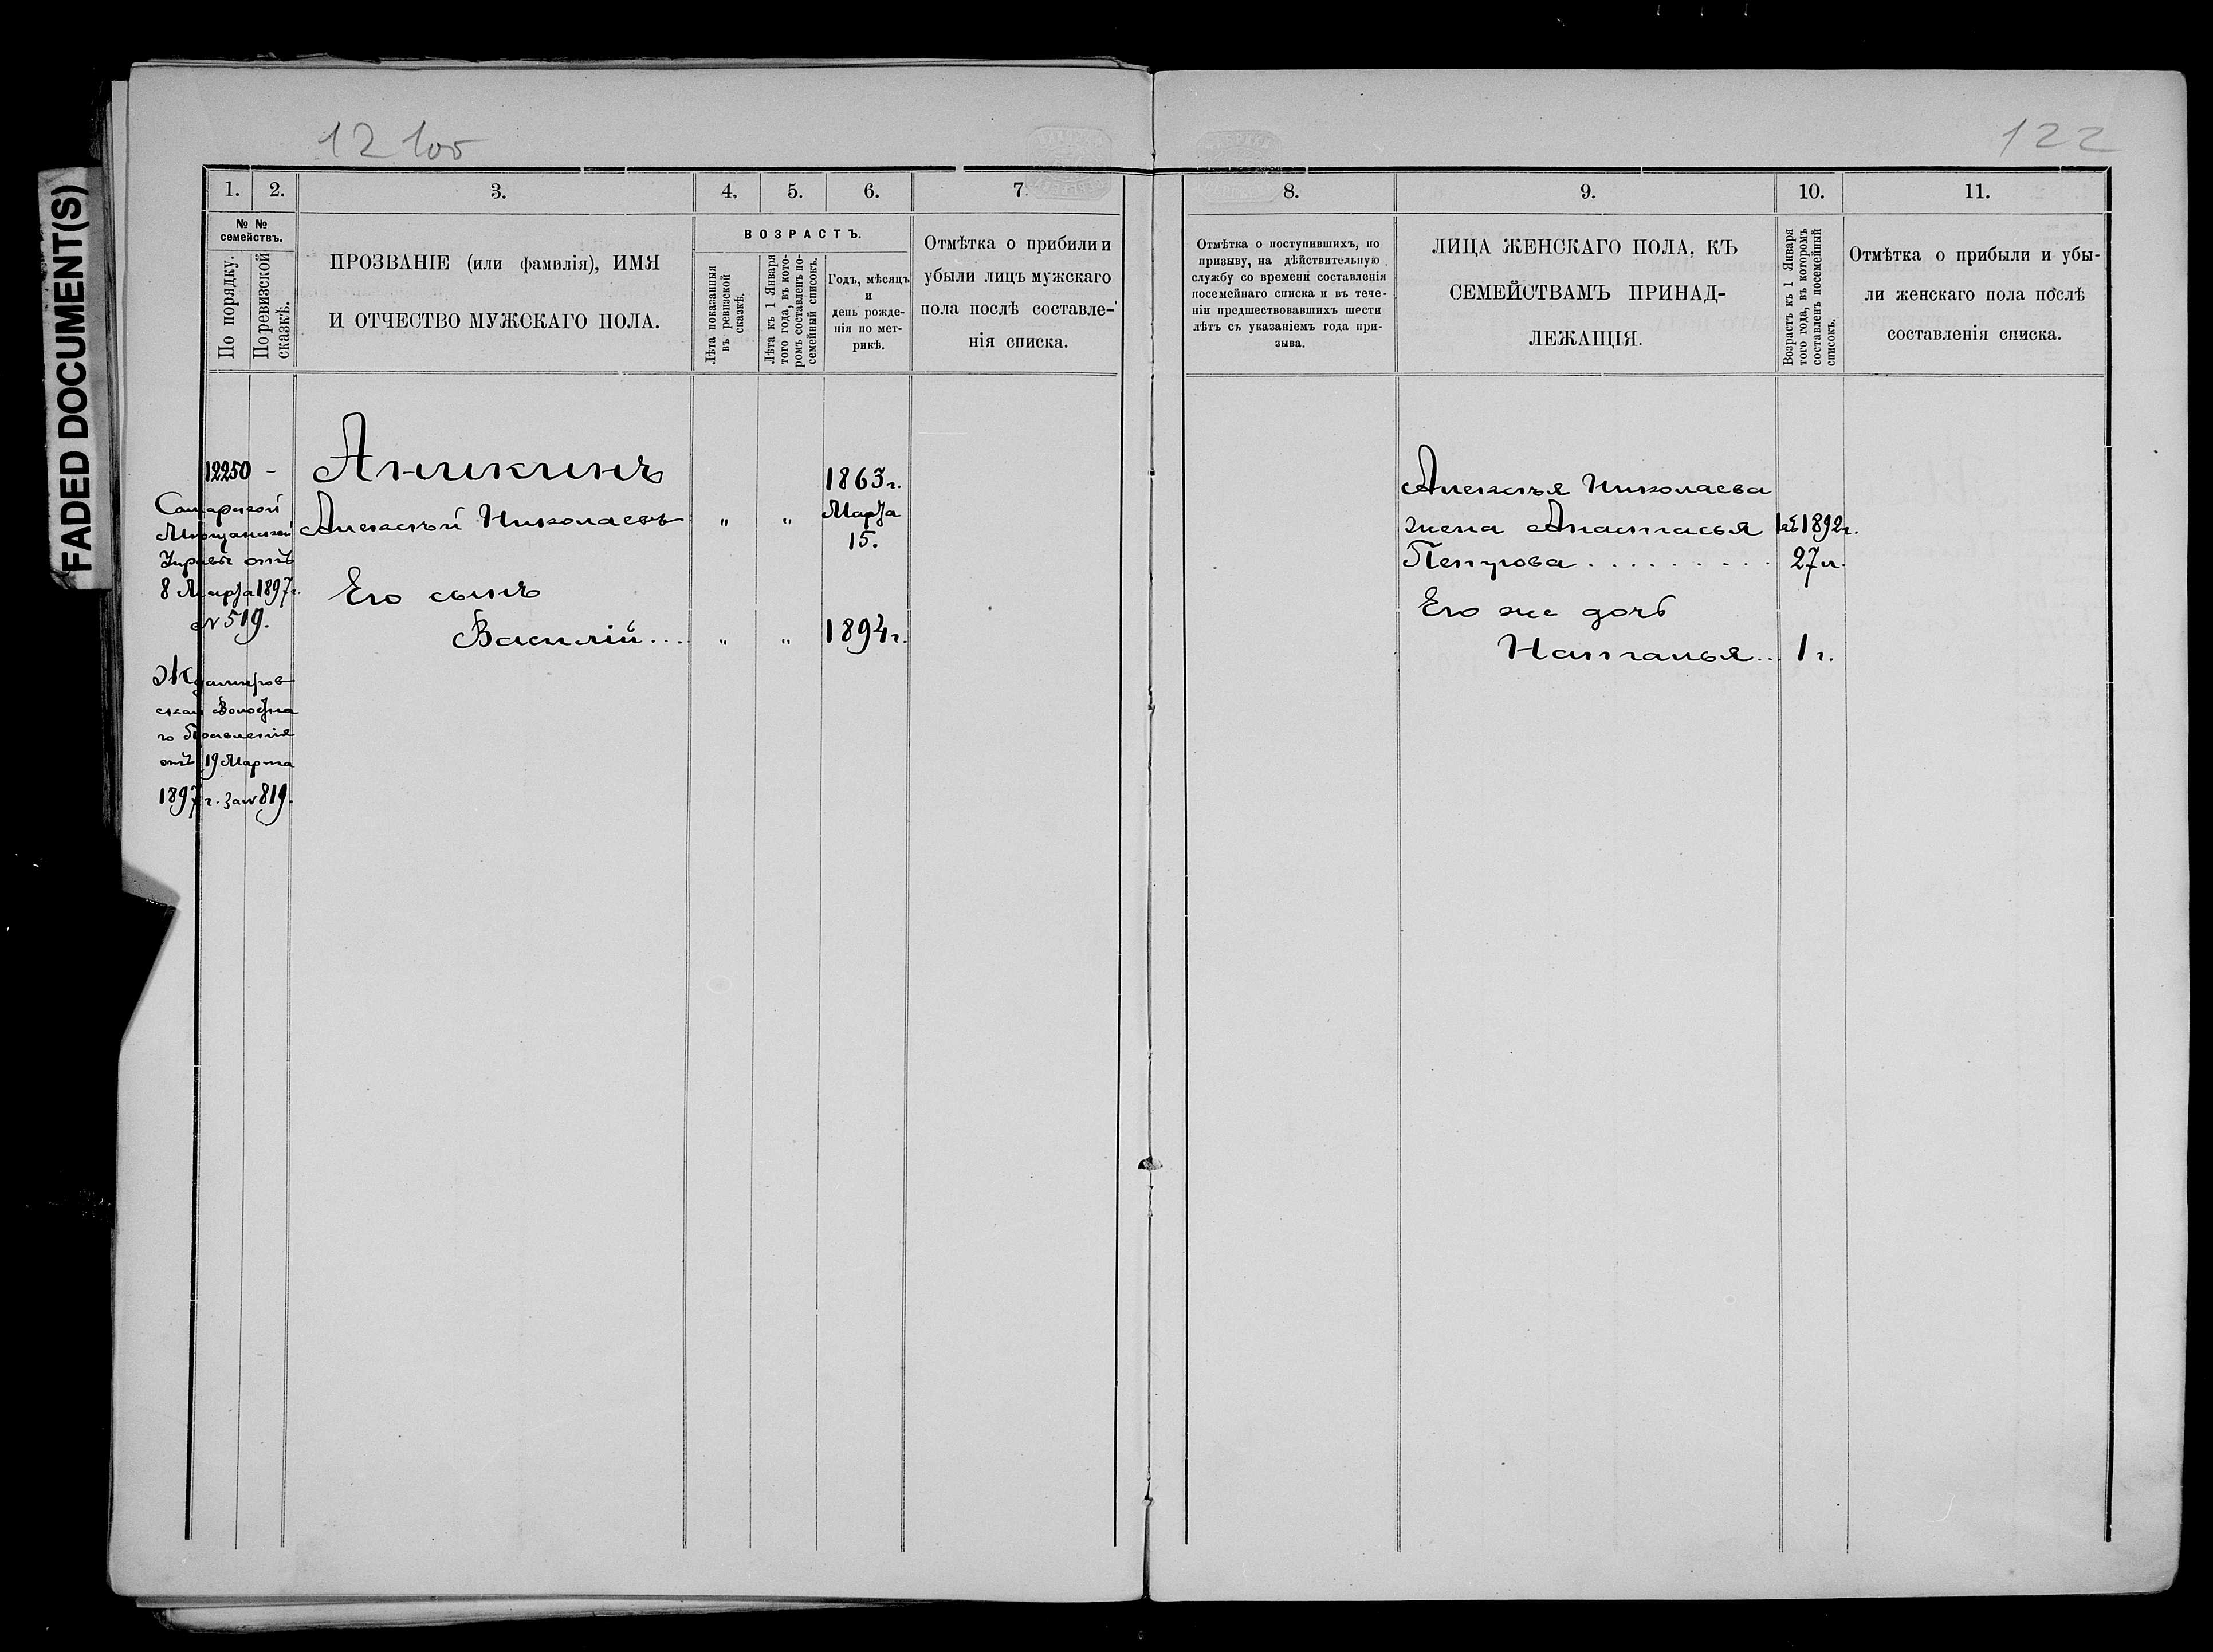 FADED DOCUMENT(S)
122
1.
2.
3.
4.
5.
6.
7.
№ №
семействъ.
По порядку.
По ревизской
сказкѣ.
ПРОЗВАНІЕ (или фамилія), ИМЯ
И ОТЧЕСТВО МУЖСКАГО ПОЛА.
ВОЗРАСТЪ.
Лѣта показанныя
въ ревизской
сказкѣ.
Лѣта къ 1 Января
того года, въ кото-
ромъ составленъ по-
семейный списокъ.
Годъ, мѣсяцъ
и
день рожде-
нія по мет-
рикѣ.
Отмѣтка о прибыли и
убыли лицъ мужскаго
пола послѣ составле-
нія списка.
12250 -
Самарской
Мѣщанской
Управы отъ
8 Марта 1897 г.
№ 519.
ской Волостна
го Правленія
отъ 19 Марта
1897 г. за № 819.
Аникинъ
Алексѣй Николаевъ " "
1863 г.
Марта
15.
Его сынъ
Василій... " " 1894 г.
8.
9.
10.
11.
Отмѣтка о поступившихъ, по
призыву, на дѣйствительную
службу со времени составленія
посемейнаго списка и въ тече-
ніи предшествовавшихъ шести
лѣтъ съ указаніемъ года при-
зыва.
ЛИЦА ЖЕНСКАГО ПОЛА, КЪ
СЕМЕЙСТВАМЪ ПРИНАД-
ЛЕЖАЩІЯ.
Возрастъ къ 1 Января
того года, въ которомъ
составленъ посемейный
списокъ.
Отмѣтка о прибыли и убы-
ли женскаго пола послѣ
составленія списка.
Алексѣя Николаева
жена Анастасья 1892 г.
Петрова . . . . . . . . . 27 л.
Его же дочь
Наталья... 1 г.